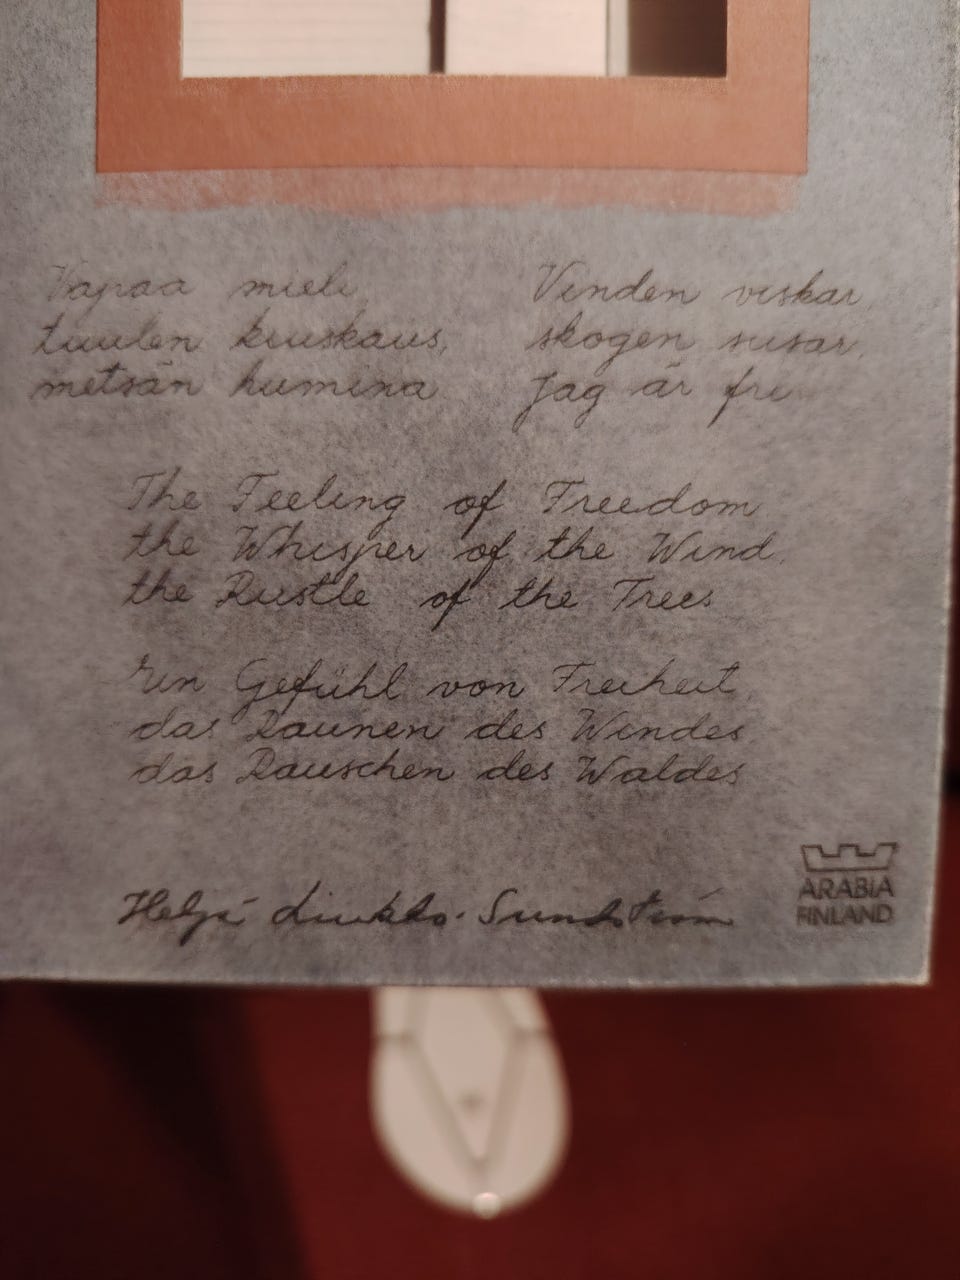 Vapaa mieli
tuulen kuiskaus,
metsän humina
Vinden viskar,
skogen susar,
Jag är fri
The Feeling of Freedom
the Whisper of the Wind,
the Rustle of the Trees
Ein Gefühl von Freiheit,
das Raunen des Windes,
das Rauschen des Waldes
Heljä Liukko-Sundström
ARABIA
FINLAND